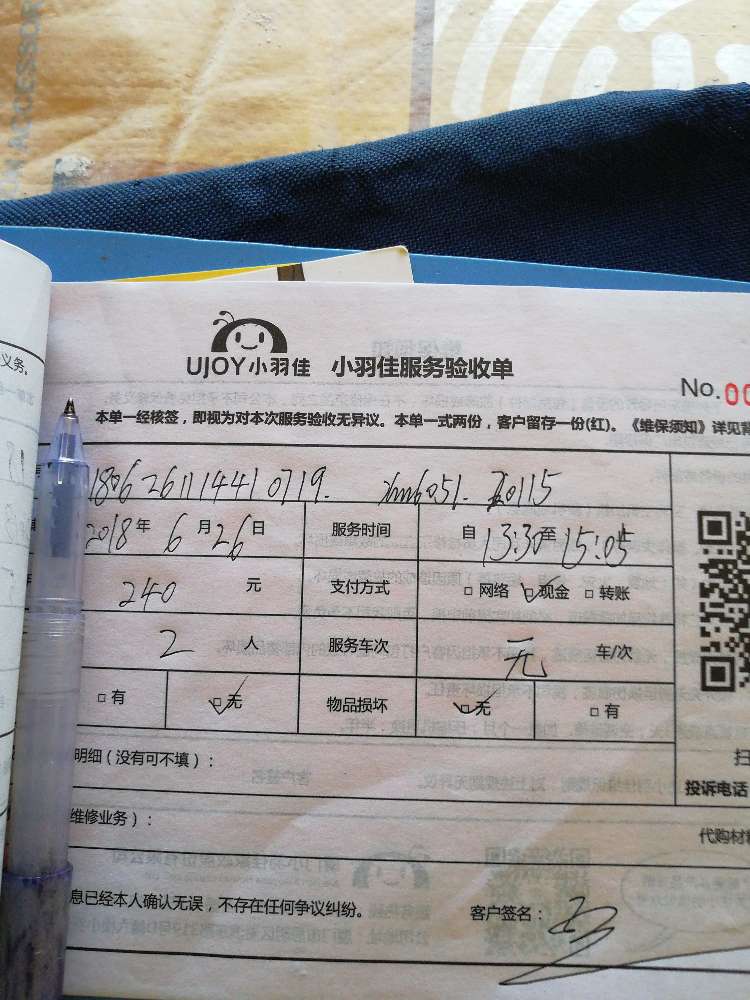 N ACCESSOR
义务。
UJOY小羽佳 小羽佳服务验收单
No.00
本单一经核签，即视为对本次服务验收无异议。本单一式两份，客户留存一份(红)。《维保须知》详见背
18062611144410719. xm6051.
2018年 6月26日 服务时间 自13:30至15:05
240 元 支付方式 □网络 □现金 □转账
2 人 服务车次 无 车/次
□有 □无 物品损坏 □无 □有
明细(没有可不填)：
扫
投诉电话
维修业务)：
代购材料
息已经本人确认无误，不存在任何争议纠纷。 客户签名：